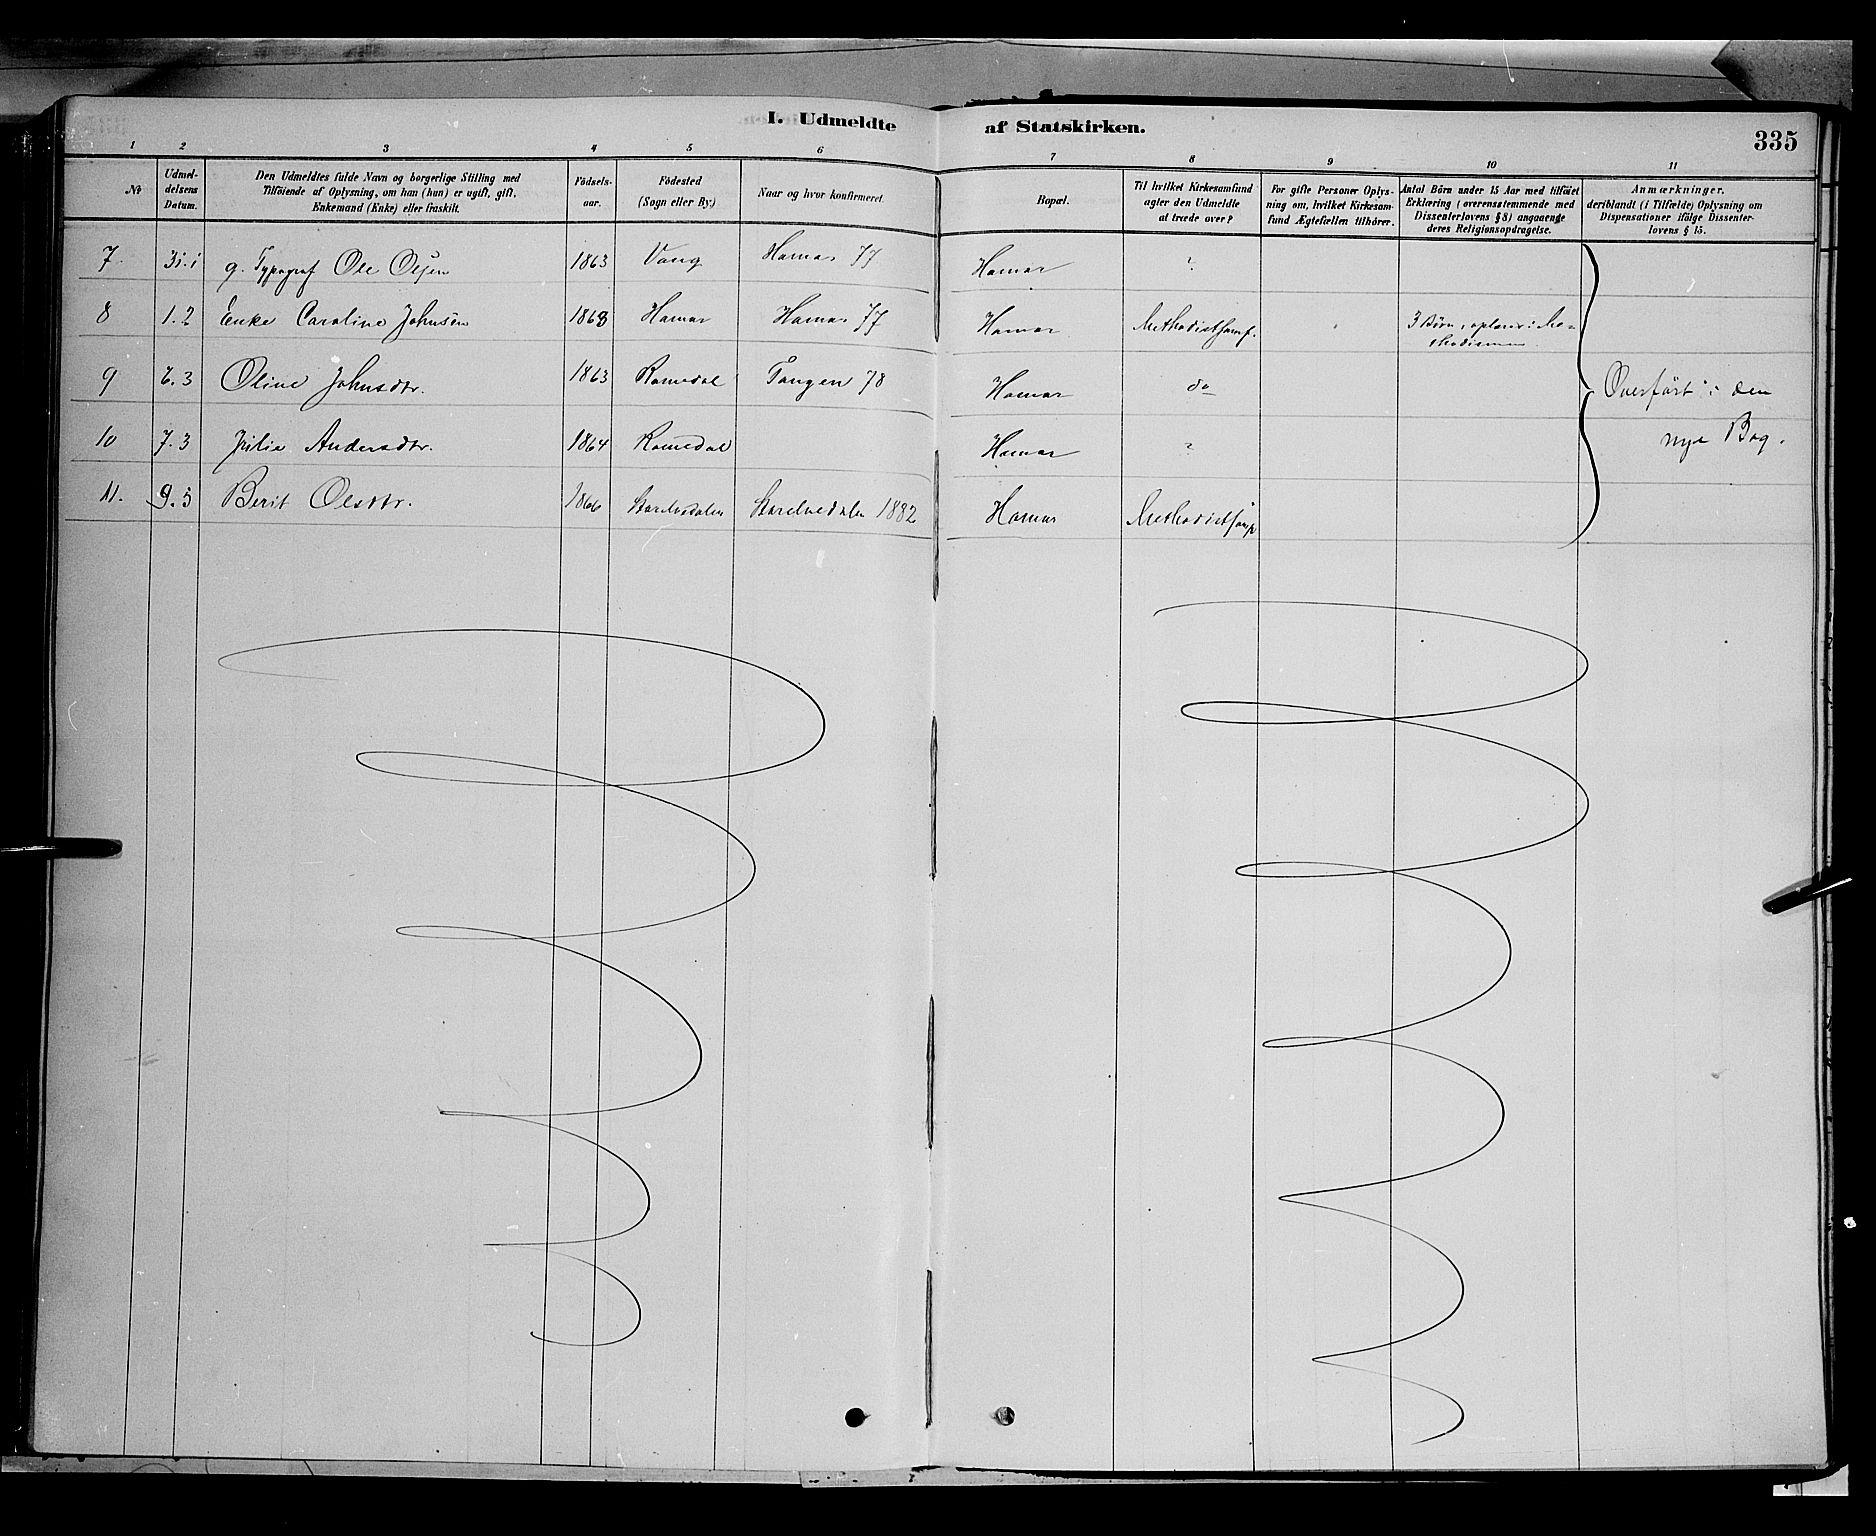 I. Udmeldte af Statskirken.
335
1 2 3 4 5 6 7 8 9 10 11
No
Udmel-
delsens
Datum.
Den Udmeldtes fulde Navn og borgerlige Stilling med
Tilföiende af Oplysning, om han (hun) er ugift, gift,
Enkemand (Enke) eller fraskilt.
Födsels-
aar.
Födested
(Sogn eller By.)
Naar og hvor konfirmeret.
Bopæl.
Til hvilket Kirkesamfund
agter den Udmeldte
at træde over?
For gifte Personer Oplys-
ning om, hvilket Kirkesam-
fund Ægtefællen tilhörer.
Antal Börn under 15 Aar med tilföiet
Erklæring (overensstemmende med
Dissenterlovens § 8) angaaende
deres Religionsopdragelse.
Anmærkninger.
deriblandt (i Tilfælde) Oplysning om
Dispensationer ifölge Dissenter-
lovens § 15.
7. 31.1 g. Typograf Ole Olsen 1863 Vang Hamar 77 Hamar ?
8 1.2 Enke Caroline Johnsen 1868 Hamar Hamar 77 Hamar Methodistsamf. 3 Börn, oplæres i Me-
thodismen
9 6.3 Oline Johnsdtr. 1863 Romedal Tangen 78 Hamar do
10 7.3 Julie Andersdtr. 1864 Romedal Hamar ?
11. 9.5 Berit Olsdtr. 1866 Storelvedalen Storelvedalen 1882 Hamar Methodistsamf
Overfört i den
nye Bog.